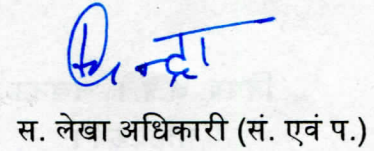 स. लेखा अधिकारी (सं. एवं प.)